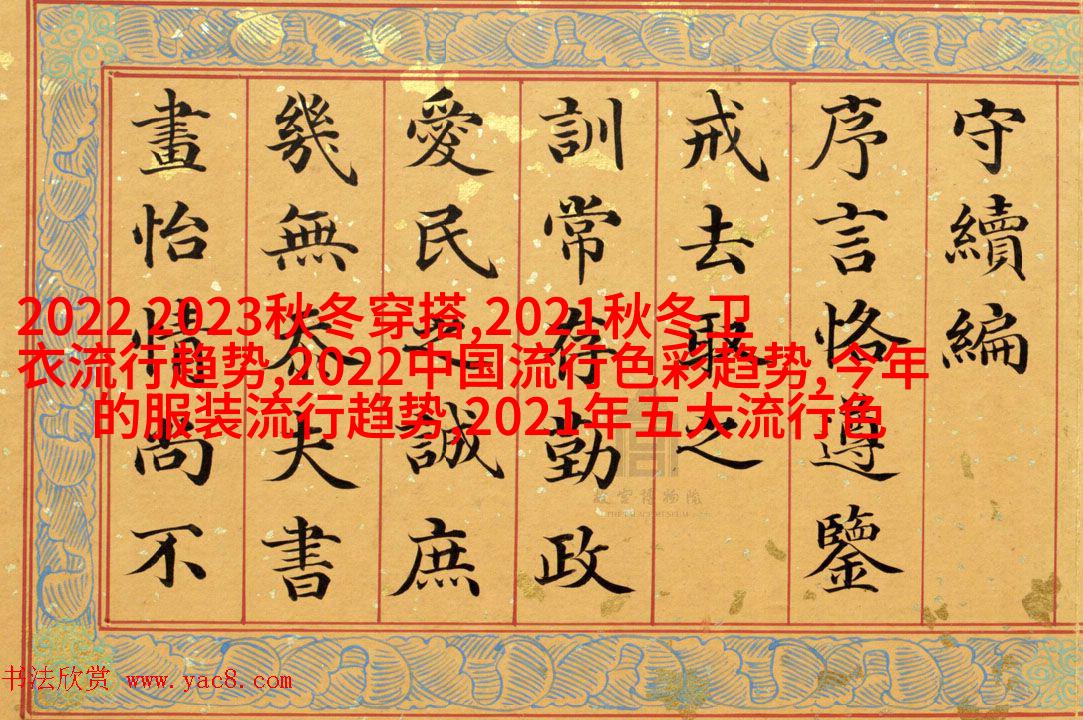 守續編
序言恪遵鑒
戒去之
訓常存勤政
愛民之誠庶
幾無忝夫書
畫怡情尚不
2022 2023秋冬穿搭,2021秋冬卫
衣流行趋势,2022中国流行色彩趋势,今年
的服装流行趋势,2021年五大流行色
故宫博物院
THE PALACE MUSEUM
书法欣赏 www.yac8.com